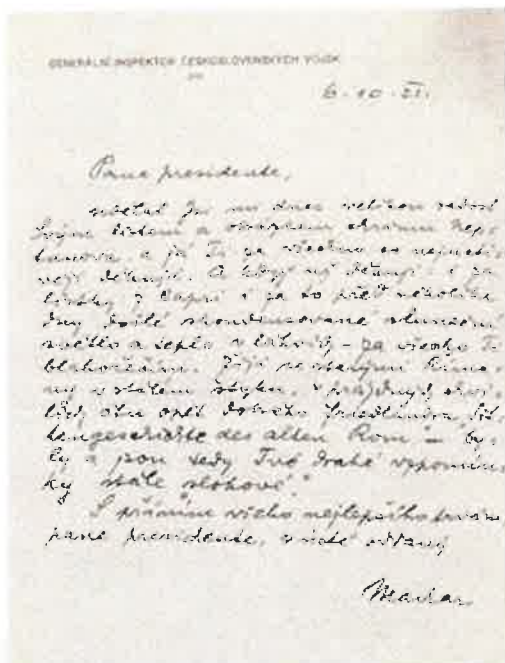 GENERÁLNÍ INSPEKTOR ČESKOSLOVENSKÝCH VOJSK
6-10-21.
Pane presidente,
udělal jsi mi dnes velikou radost
Svým listem a obrazem chrámu Nep-
tunova a já Ti za všechno co nejsrdeč-
něji děkuji. A když už děkuji i za
lístky z Capri i za to před několika
dny došlé skondensované sluneční
světlo a teplo v láhvích – za všecko Ti
blahořečím. Žiji se starými Říma-
ny v stálém styku, v prázdných chví-
lích čtu opět dobrého Friedländra Sit-
tengeschichte des alten Rom – by-
ly a jsou tedy Tvé drahé vzpomín-
ky stále slohové.
S přáním všeho nejlepšího trvám,
pane presidente, v úctě oddaný
Machar